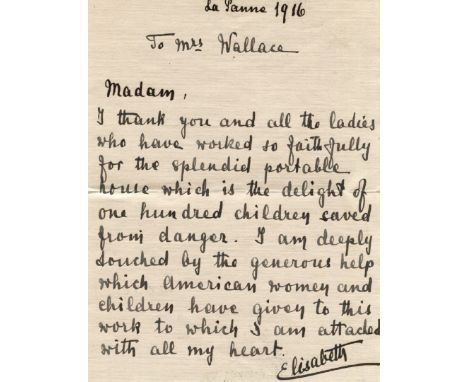 La Panne 1916
To Mrs Wallace
Madam,
I thank you and all the ladies
who have worked so faithfully
for the splendid portable
house which is the delight of
one hundred children saved
from danger. I am deeply
touched by the generous help
which American women and
children have given to this
work to which I am attached
with all my heart.
Elisabeth